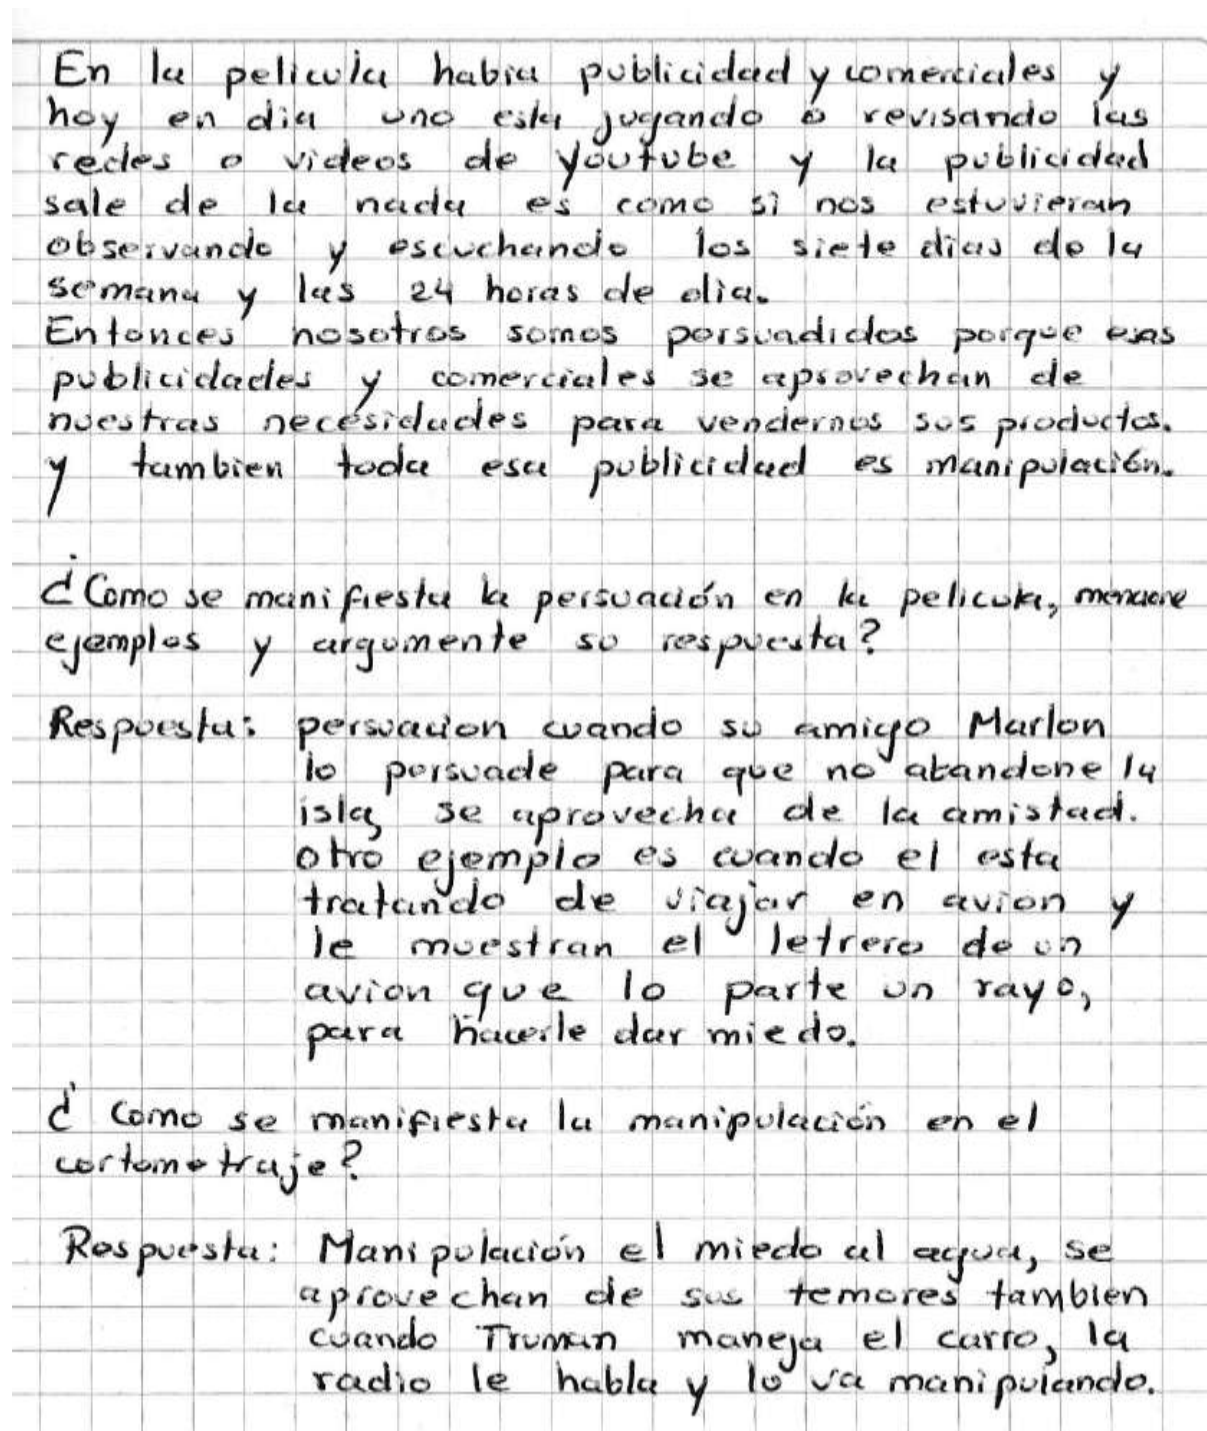 En la pelicula habia publicidad y comerciales y
hoy en dia uno esta jugando o revisando las
redes o videos de youtube y la publicidad
sale de la nada es como si nos estuvieran
observando y escuchando los siete dias de la
semana y las 24 horas de dia.
Entonces nosotros somos persuadidos porque esas
publicidades y comerciales se aprovechan de
nuestras necesidades para vendernos sus productos.
y tambien toda esa publicidad es manipulación.
¿Como se manifiesta la persuación en la pelicula, mencione
ejemplos y argumente su respuesta?
Respuesta: persuacion cuando su amigo Marlon
lo persuade para que no abandone la
isla, se aprovecha de la amistad.
otro ejemplo es cuando el esta
tratando de viajar en avion y
le muestran el letrero de un
avion que lo parte un rayo,
para hacerle dar miedo.
¿ Como se manifiesta la manipulación en el
cortometraje?
Respuesta: Manipulación el miedo al agua, se
aprovechan de sus temores tambien
cuando Truman maneja el carro, la
radio le habla y lo va manipulando.